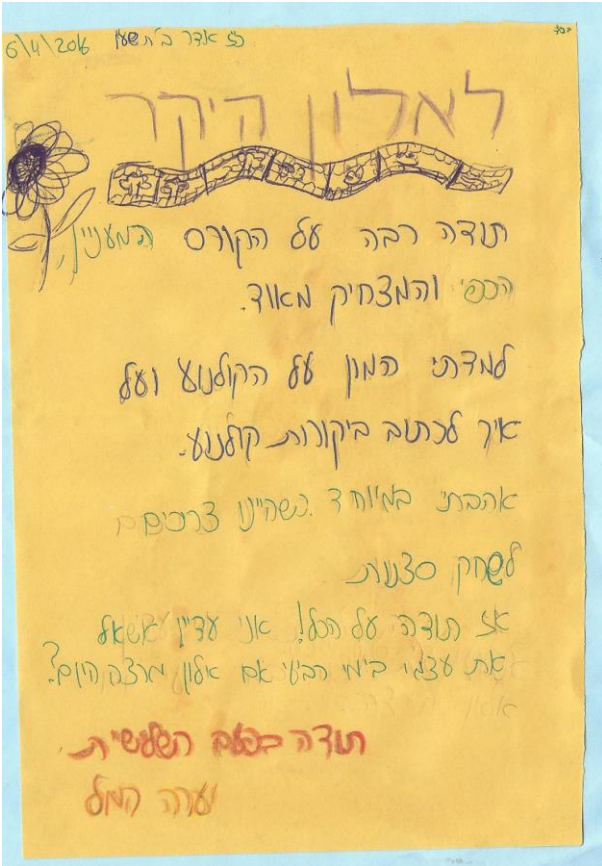 בס"ד
6/4/2016 כ"ז אדר ב' תשע"ו
לאלון היקר
תודה רבה על הקורס המעניין,
הכפי והמצחיק מאוד.
למדתי המון על הקולנוע ועל
איך לכתוב ביקורות קולנוע.
אהבתי במיוחד כשהיינו צריכים
לשחק סצנות
אז תודה על הכל! אני עדיין אשאל
את עצמי בימי רביעי אם אלון מרצה היום?
תודה בפעם השלישית
יערה המל